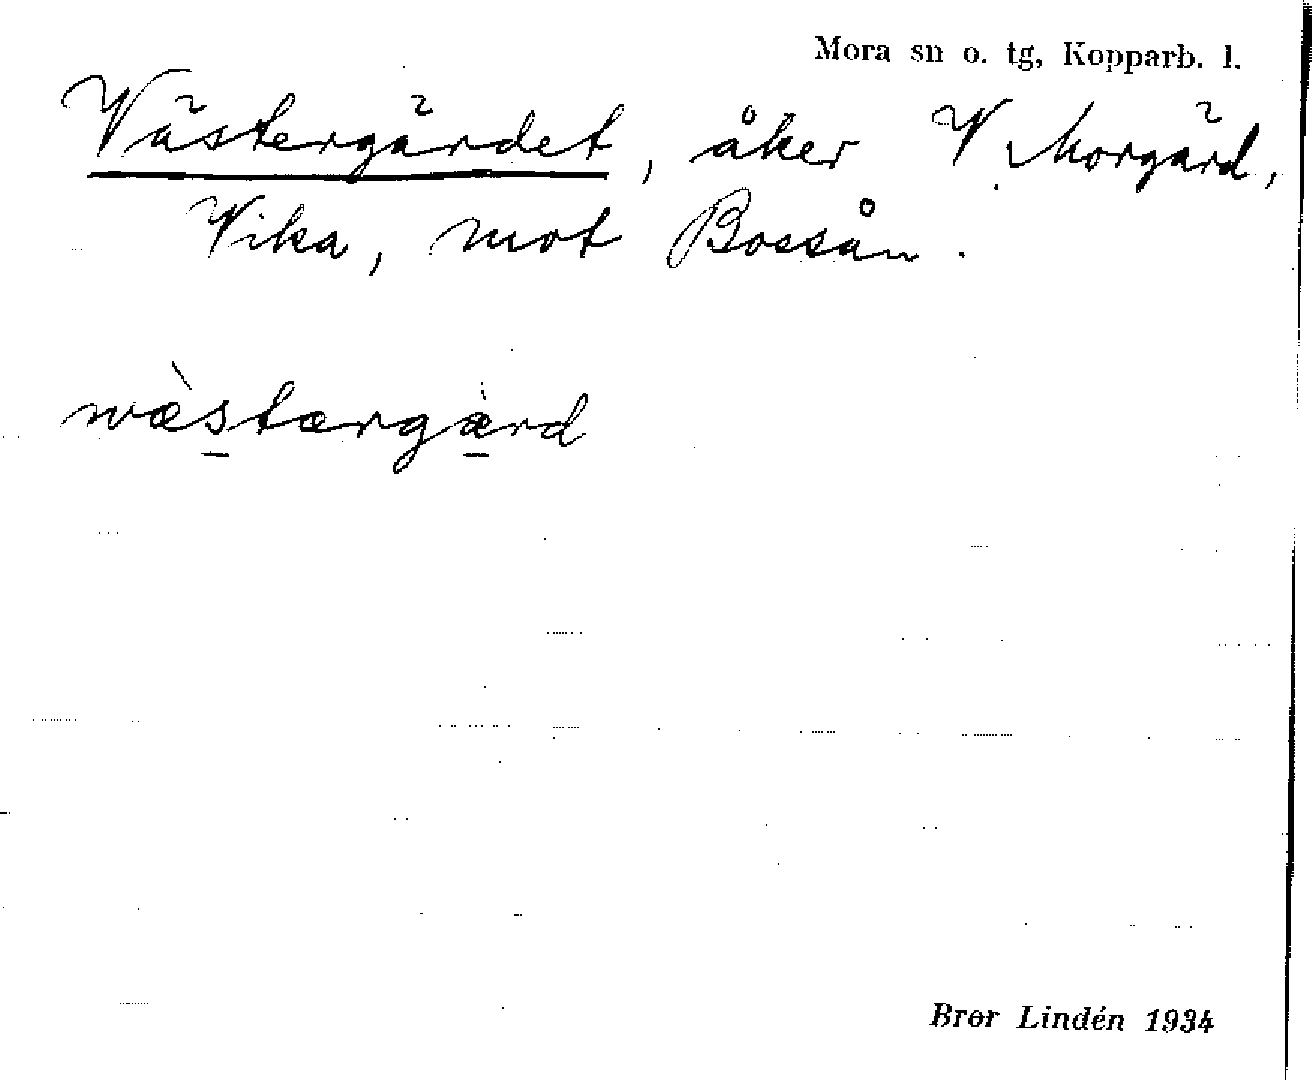 Mora sn o. tg, Kopparb. l.
Västergärdet, åker V. Morgärd,
Vika, mot Bossån.
wæ̀stærgàrd
Bror Lindén 1934